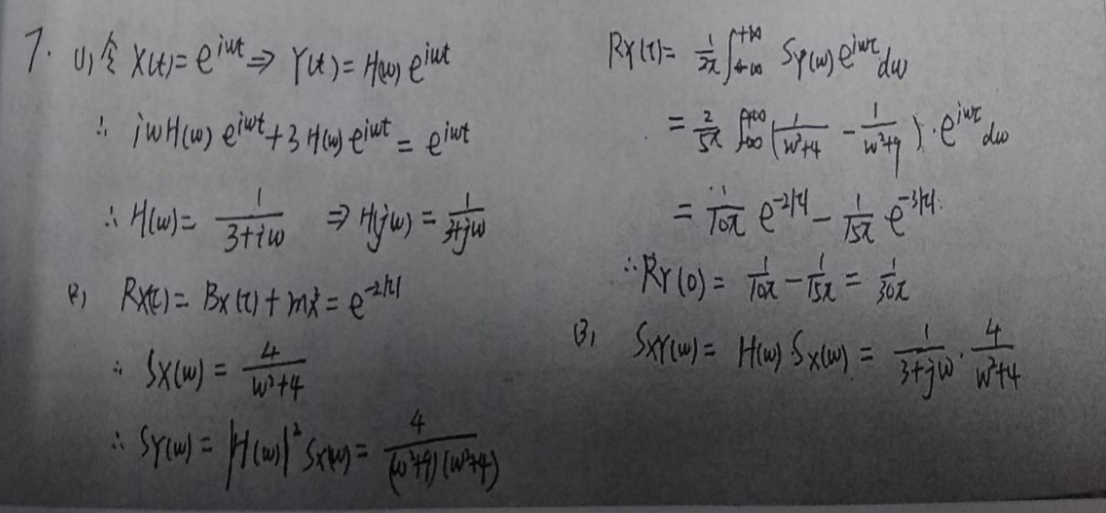 7. (1) 令 X(t) = e^{iωt} ⇒ Y(t) = H(ω) e^{iωt}
∴ iωH(ω) e^{iωt} + 3H(ω) e^{iωt} = e^{iωt}
∴ H(ω) = 1/(3+iω) ⇒ H(jω) = 1/(3+jω)
(2) R_X(τ) = B_X(τ) + m_X^2 = e^{-2|τ|}
∴ S_X(ω) = 4/(ω²+4)
∴ S_Y(ω) = |H(ω)|² S_X(ω) = 4/((ω²+9)(ω²+4))
R_Y(τ) = 1/(2π) ∫_{-∞}^{+∞} S_Y(ω) e^{iωτ} dω
= 2/(5π) ∫_{-∞}^{+∞} (1/(ω²+4) - 1/(ω²+9)) · e^{iωτ} dω
= 1/(10π) e^{-2|τ|} - 1/(15π) e^{-3|τ|}
∴ R_Y(0) = 1/(10π) - 1/(15π) = 1/(30π)
(3) S_XY(ω) = H(ω) · S_X(ω) = 1/(3+jω) · 4/(ω²+4)